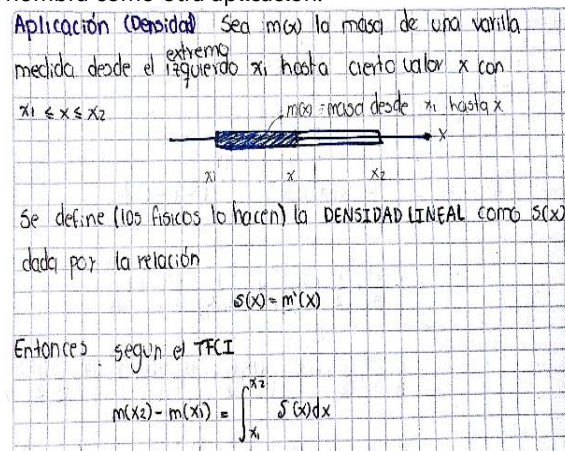 nombra como otra aplicación.
Aplicación (Densidad) Sea m(x) la masa de una varilla
medida desde el extremo izquierdo x₁ hasta cierto valor x con
x₁ ≤ x ≤ x₂
m(x) = masa desde x₁ hasta x
x
x₁ x x₂
Se define (los físicos lo hacen) la DENSIDAD LINEAL como δ(x)
dada por la relación
δ(x) = m'(x)
Entonces según el TFCI
m(x₂) - m(x₁) = ∫_{x₁}^{x₂} δ(x)dx